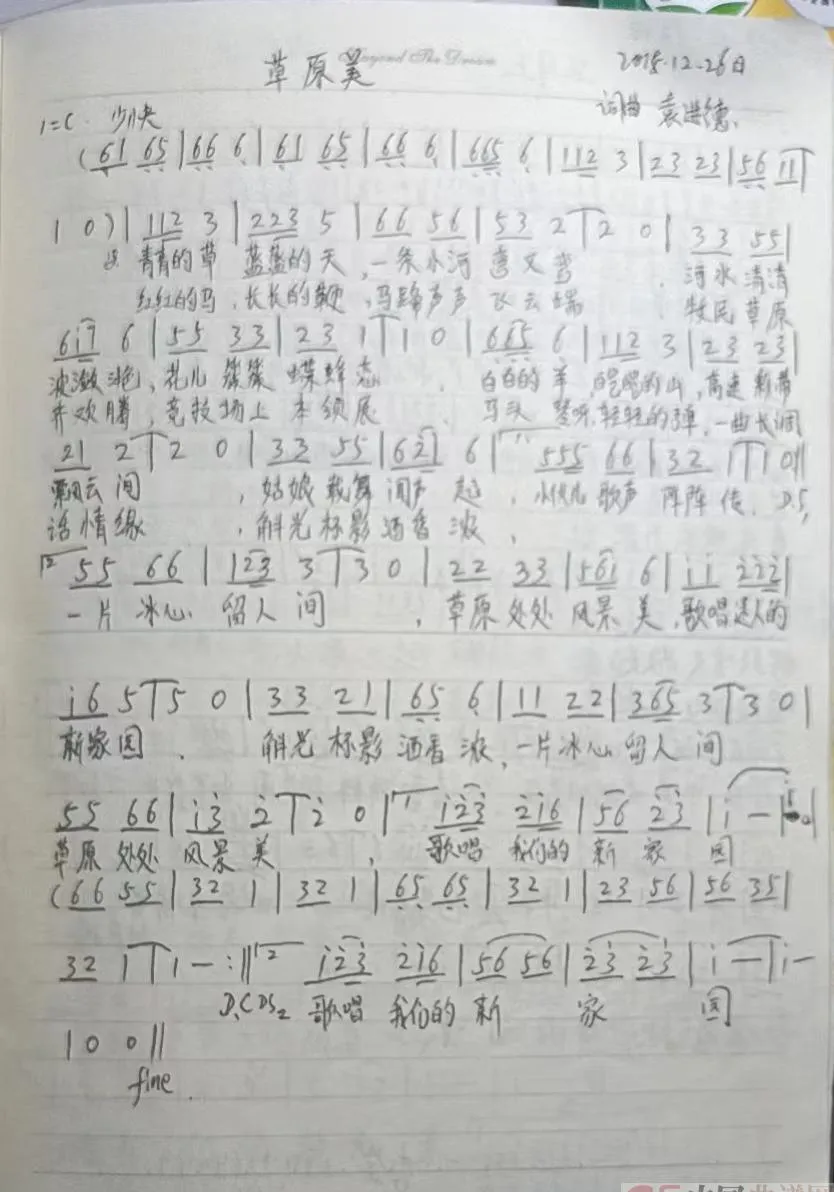 草原美 Beyond The Dream 2015.12.26日
1=C 少快 词曲 袁进德.
(61 65|66 6|61 65|66 6|665 6|112 3|23 23|56 11
1 0)|112 3|223 5|66 56|53 2 2 0|33 55|
青青的草 蓝蓝的天,一条小河 弯又弯 , 河水清清
红红的马,长长的鞭,马蹄声声 飞云端 牧民草原
6i7 6|55 33|23 1 1 0|665 6|112 3|23 23|
波激滟,花儿 簇簇 蝶蜂恋 , 白白的羊,皑皑的山,高速
齐欢腾,竞技场上 本领展 马头 琴呀,轻轻的弹,一曲长调
21 2 2 0|33 55|621 6|1. 555 66|32 1 1 0||
飘云间 ,姑娘载舞 闻声 起, 歌声 阵阵 传. D.S,
话情缘 ,斛光杯影 酒香 浓,
2 55 66|123 3 3 0|22 33|561 6|i i 222|
一片 冰心 留人 间 ,草原处处 风景 美,歌唱 的
i6 5 5 0|33 21|65 6|11 22|365 3 3 0|
新家园 . 斛光 杯影 酒香 浓,一片冰心 留人 间
55 66|i3 2 2 0|1 i23 2i6|56 23|i —|
草原 处处 风景 美 , 歌唱 我们的 新 家 园
(66 55|32 1|32 1|65 65|32 1|23 56|56 35|
32 1 1 — :||2 i23 2i6|56 56|23 23|i —|i—
D.C DS2 歌唱 我们的 新 家 园
|0 0||
fine.